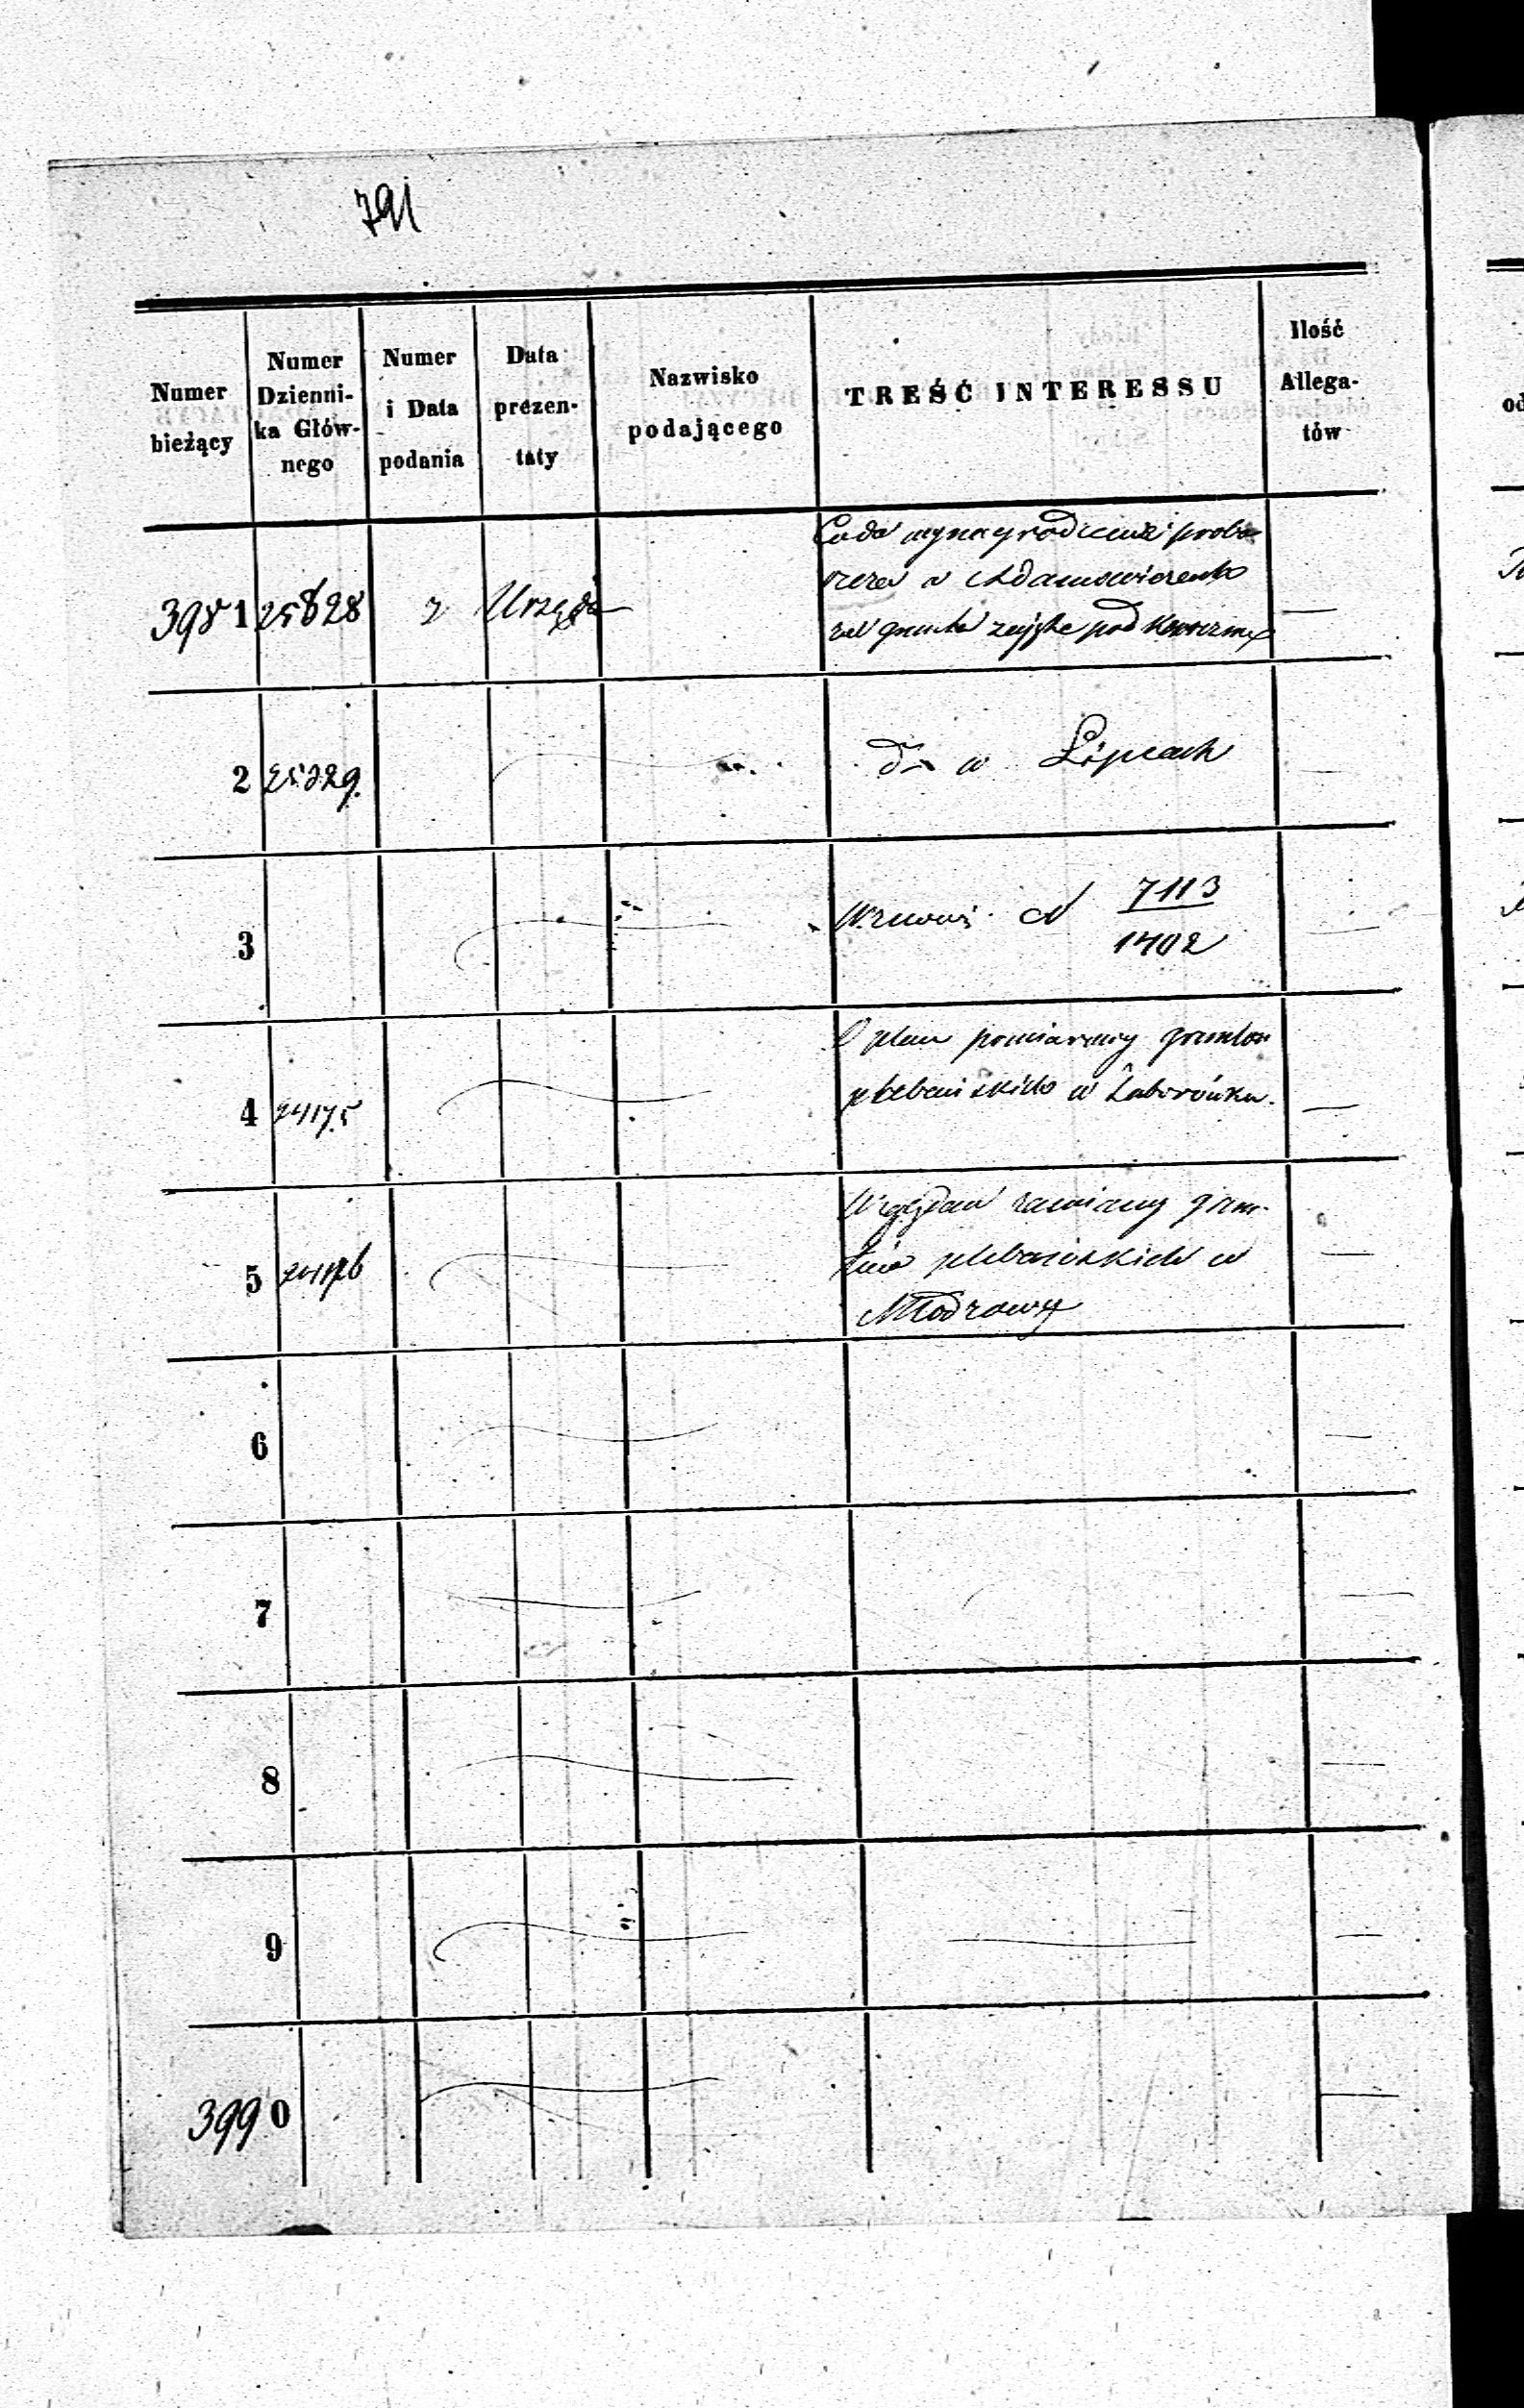 791
Numer bieżący
Numer Dzienni-ka Głów-nego
Numer i Data podania
Data prezen-taty
Nazwisko podającego
TREŚĆ INTERESSU
Ilość Allega-tów
3981 25828 z Urzędu
Co do wynagrodzenia probo-
szcza w Adamowicach
za grunta zajęte pod
2 25829. do w Lipcach
3 Wznowi N 7113
1402
O plan pomiarowy gruntów
4 24175 plebańskich w Zaborówku.
Względem zamiany grun-
5 24176 tów plebańskich w
6
7
8
9
3990